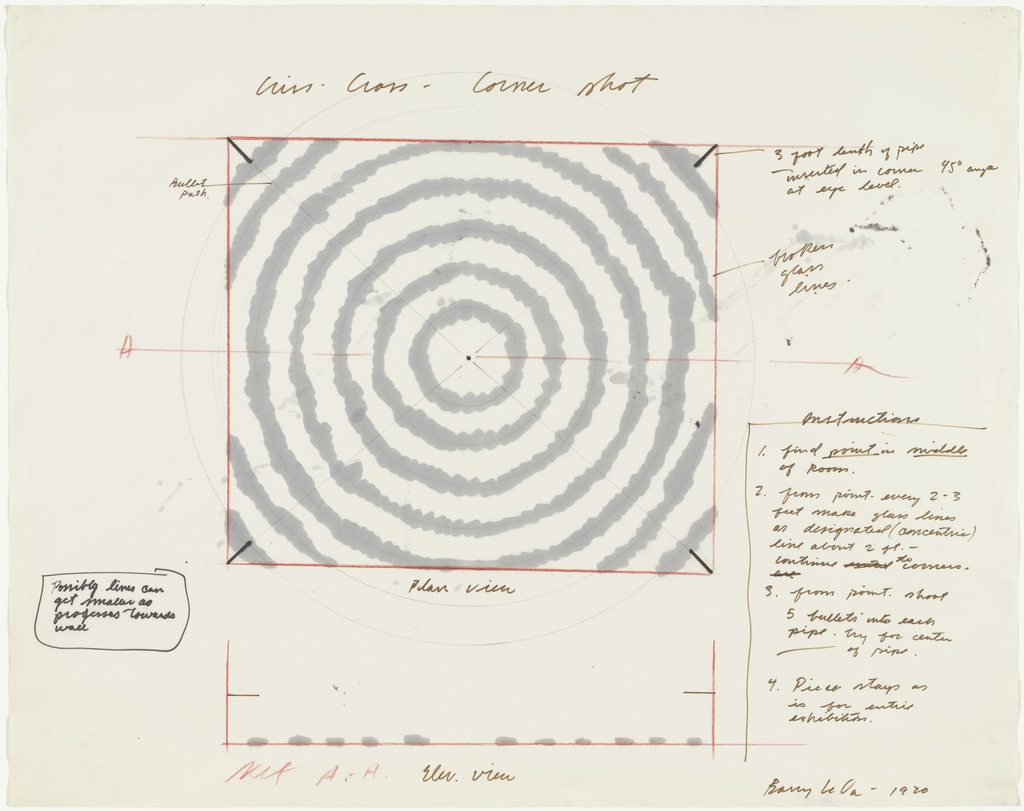 Criss-Cross- Corner shot
Bullet
path.
3 foot lenth of pipe
inserted in corner 45°
at eye level.
broken
glass
lines.
A
A
Instructions
1. find point in middle
of room.
2. from point- every 2-3
feet make glass lines
as designated (concentric)
line about 2 ft. -
continue to corners.
3. from point. shoot
5 bullets into each
pipe. try for center
of pipe.
4. Piece stays as
is for entire
exhibition.
Possibly lines can
get smaller as
progresses towards
wall
Plan view
A-A. Elev. view
Barry Le Va - 1970